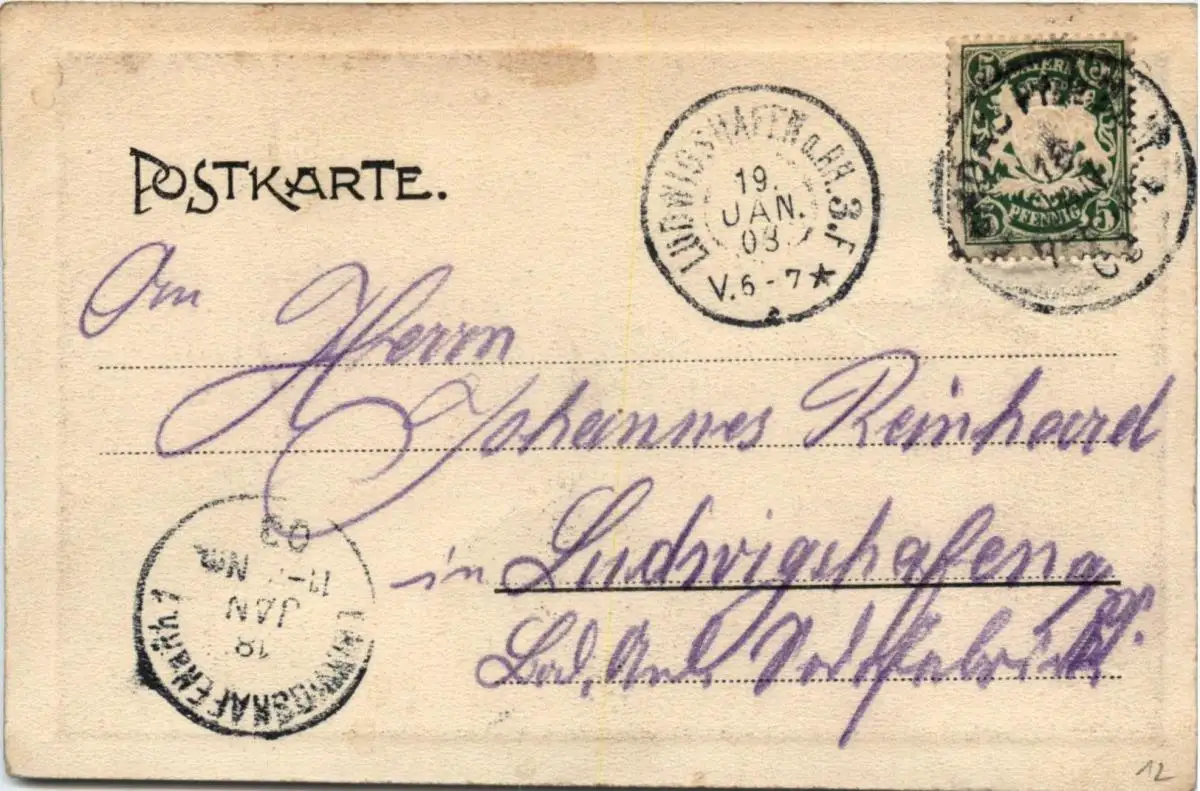 POSTKARTE.
LUDWIGSHAFEN a. RH. 3. F
19.
JAN.
03
V. 6 - 7
BAYERN
5 5
5 PFENNIG 5
An
Herrn
Johannes Reinhard
in Ludwigshafen a/
Rh.
Bad. Anil.
LUDWIGSHAFEN a. Rh. 1
18
JAN
Nm.
03
12